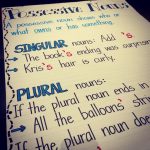 Possessive Nouns
A possessive noun shows who or
what owns or has something.
SINGULAR nouns: Add 's
→ The book's ending was surprisin
→ Kris's hair is curly.
PLURAL nouns:
If the plural noun ends in
→ All the balloons' strings
If the plural noun does